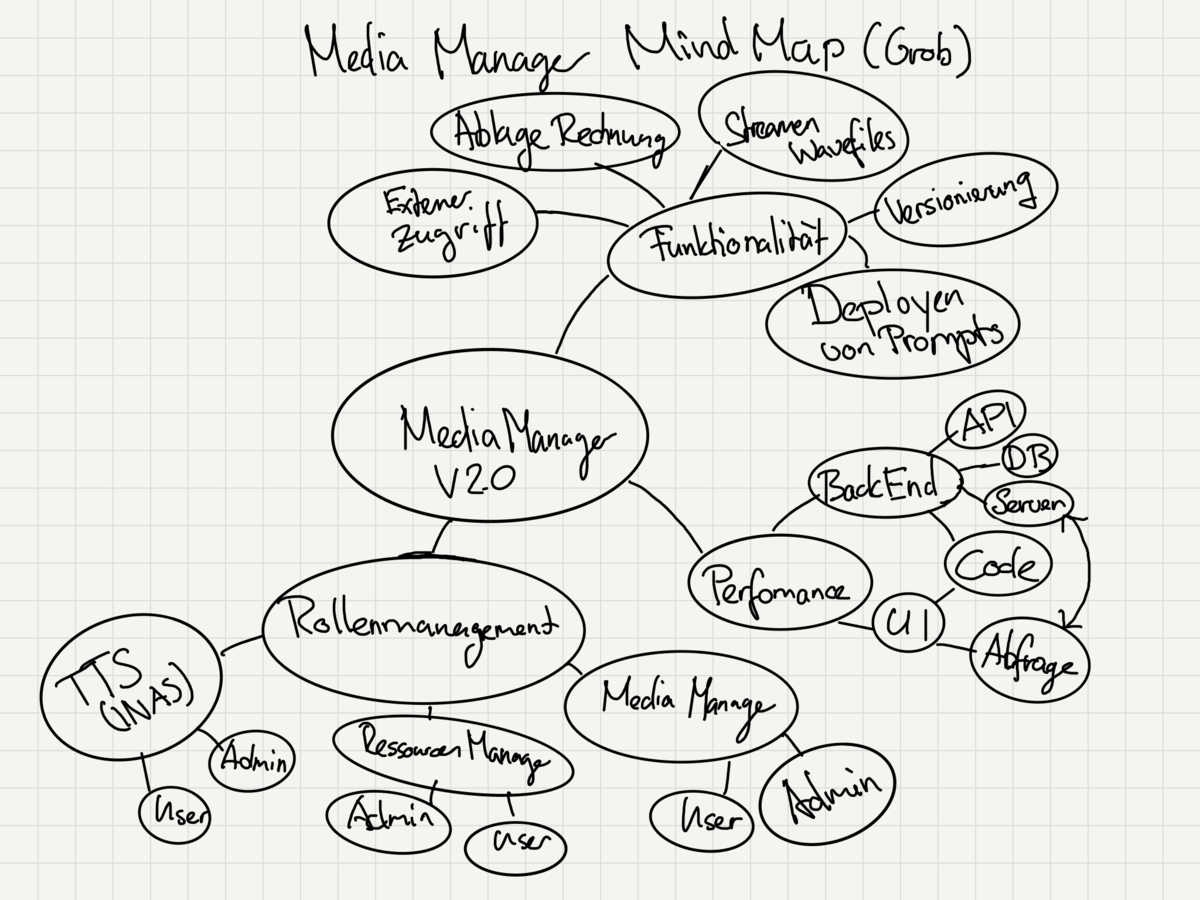 Media Manager Mind Map (Grob)
Ablage Rechnung
Streamen
Wavefiles
Externer
Zugriff
Versionierung
Funktionalität
Deployen
von Prompts
Media Manager
V2.0
API
DB
BackEnd
Server
Code
Perfomance
UI
Abfrage
Rollenmanagement
TTS
(INAS)
Media Manage
Ressourcen Manage
Admin
User
Admin
User
User
Admin